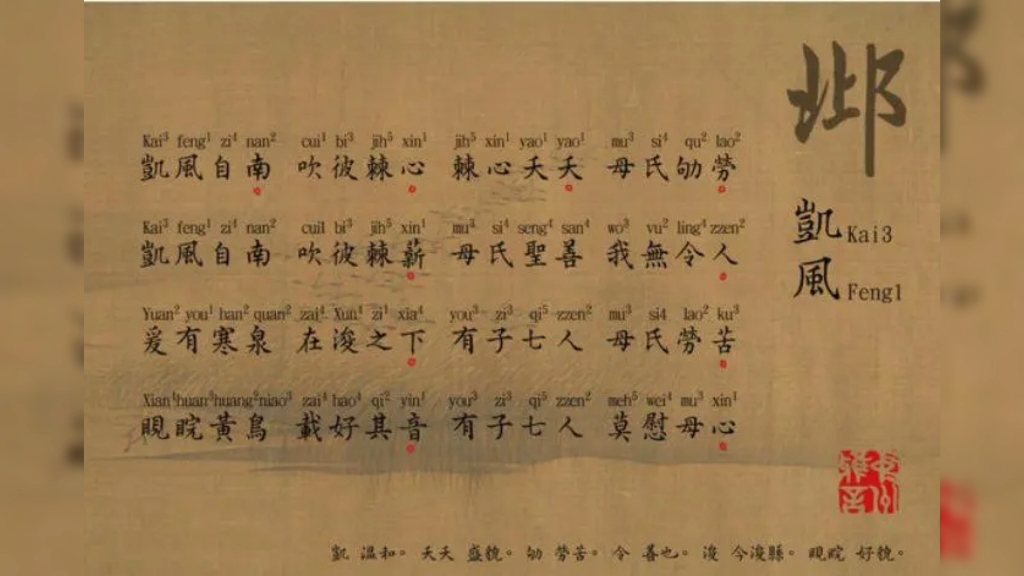 邶
凱 Kai3
風 Feng1
Kai³ feng¹ zi⁴ nan² cui¹ bi³ jih⁵ xin¹ jih⁵ xin¹ yao¹ yao¹ mu³ si⁴ qu² lao²
凱風自南 吹彼棘心 棘心夭夭 母氏劬勞
Kai³ feng¹ zi⁴ nan² cui1 bi³ jih⁵ xin¹ mu³ si⁴ seng⁴ san⁴ wo³ vu² ling⁴ zzen²
凱風自南 吹彼棘薪 母氏聖善 我無令人
Yuan² you¹ han² quan² zai⁴ Xun⁴ zi¹ xia⁴ you³ zi³ qi⁵ zzen² mu³ si4 lao² ku³
爰有寒泉 在浚之下 有子七人 母氏勞苦
Xian⁴ huan³ huang² niao³ zai⁴ hao⁴ qi² yin¹ you³ zi³ qi⁵ zzen² meh⁵ wei⁴ mu³ xin¹
睍睆黃鳥 載好其音 有子七人 莫慰母心
凱 溫和。夭夭 盛貌。劬 勞苦。令 善也。浚 今浚縣。睍睆 好貌。